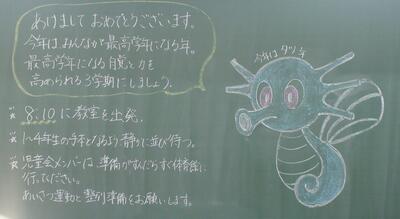 あけまして おめでとうございます。
今年は、みんなが最高学年になる年。
最高学年になる自覚と力を
高められる3学期にしましょう。
今年はタツ年
※ 8:10に教室を出発。
※ 1〜4年生の手本となるよう静かに並び待つ。
※ 児童会メンバーは、準備がすんだらすぐ体育館に
行ってください。
あいさつ運動と整列準備をお願いします。